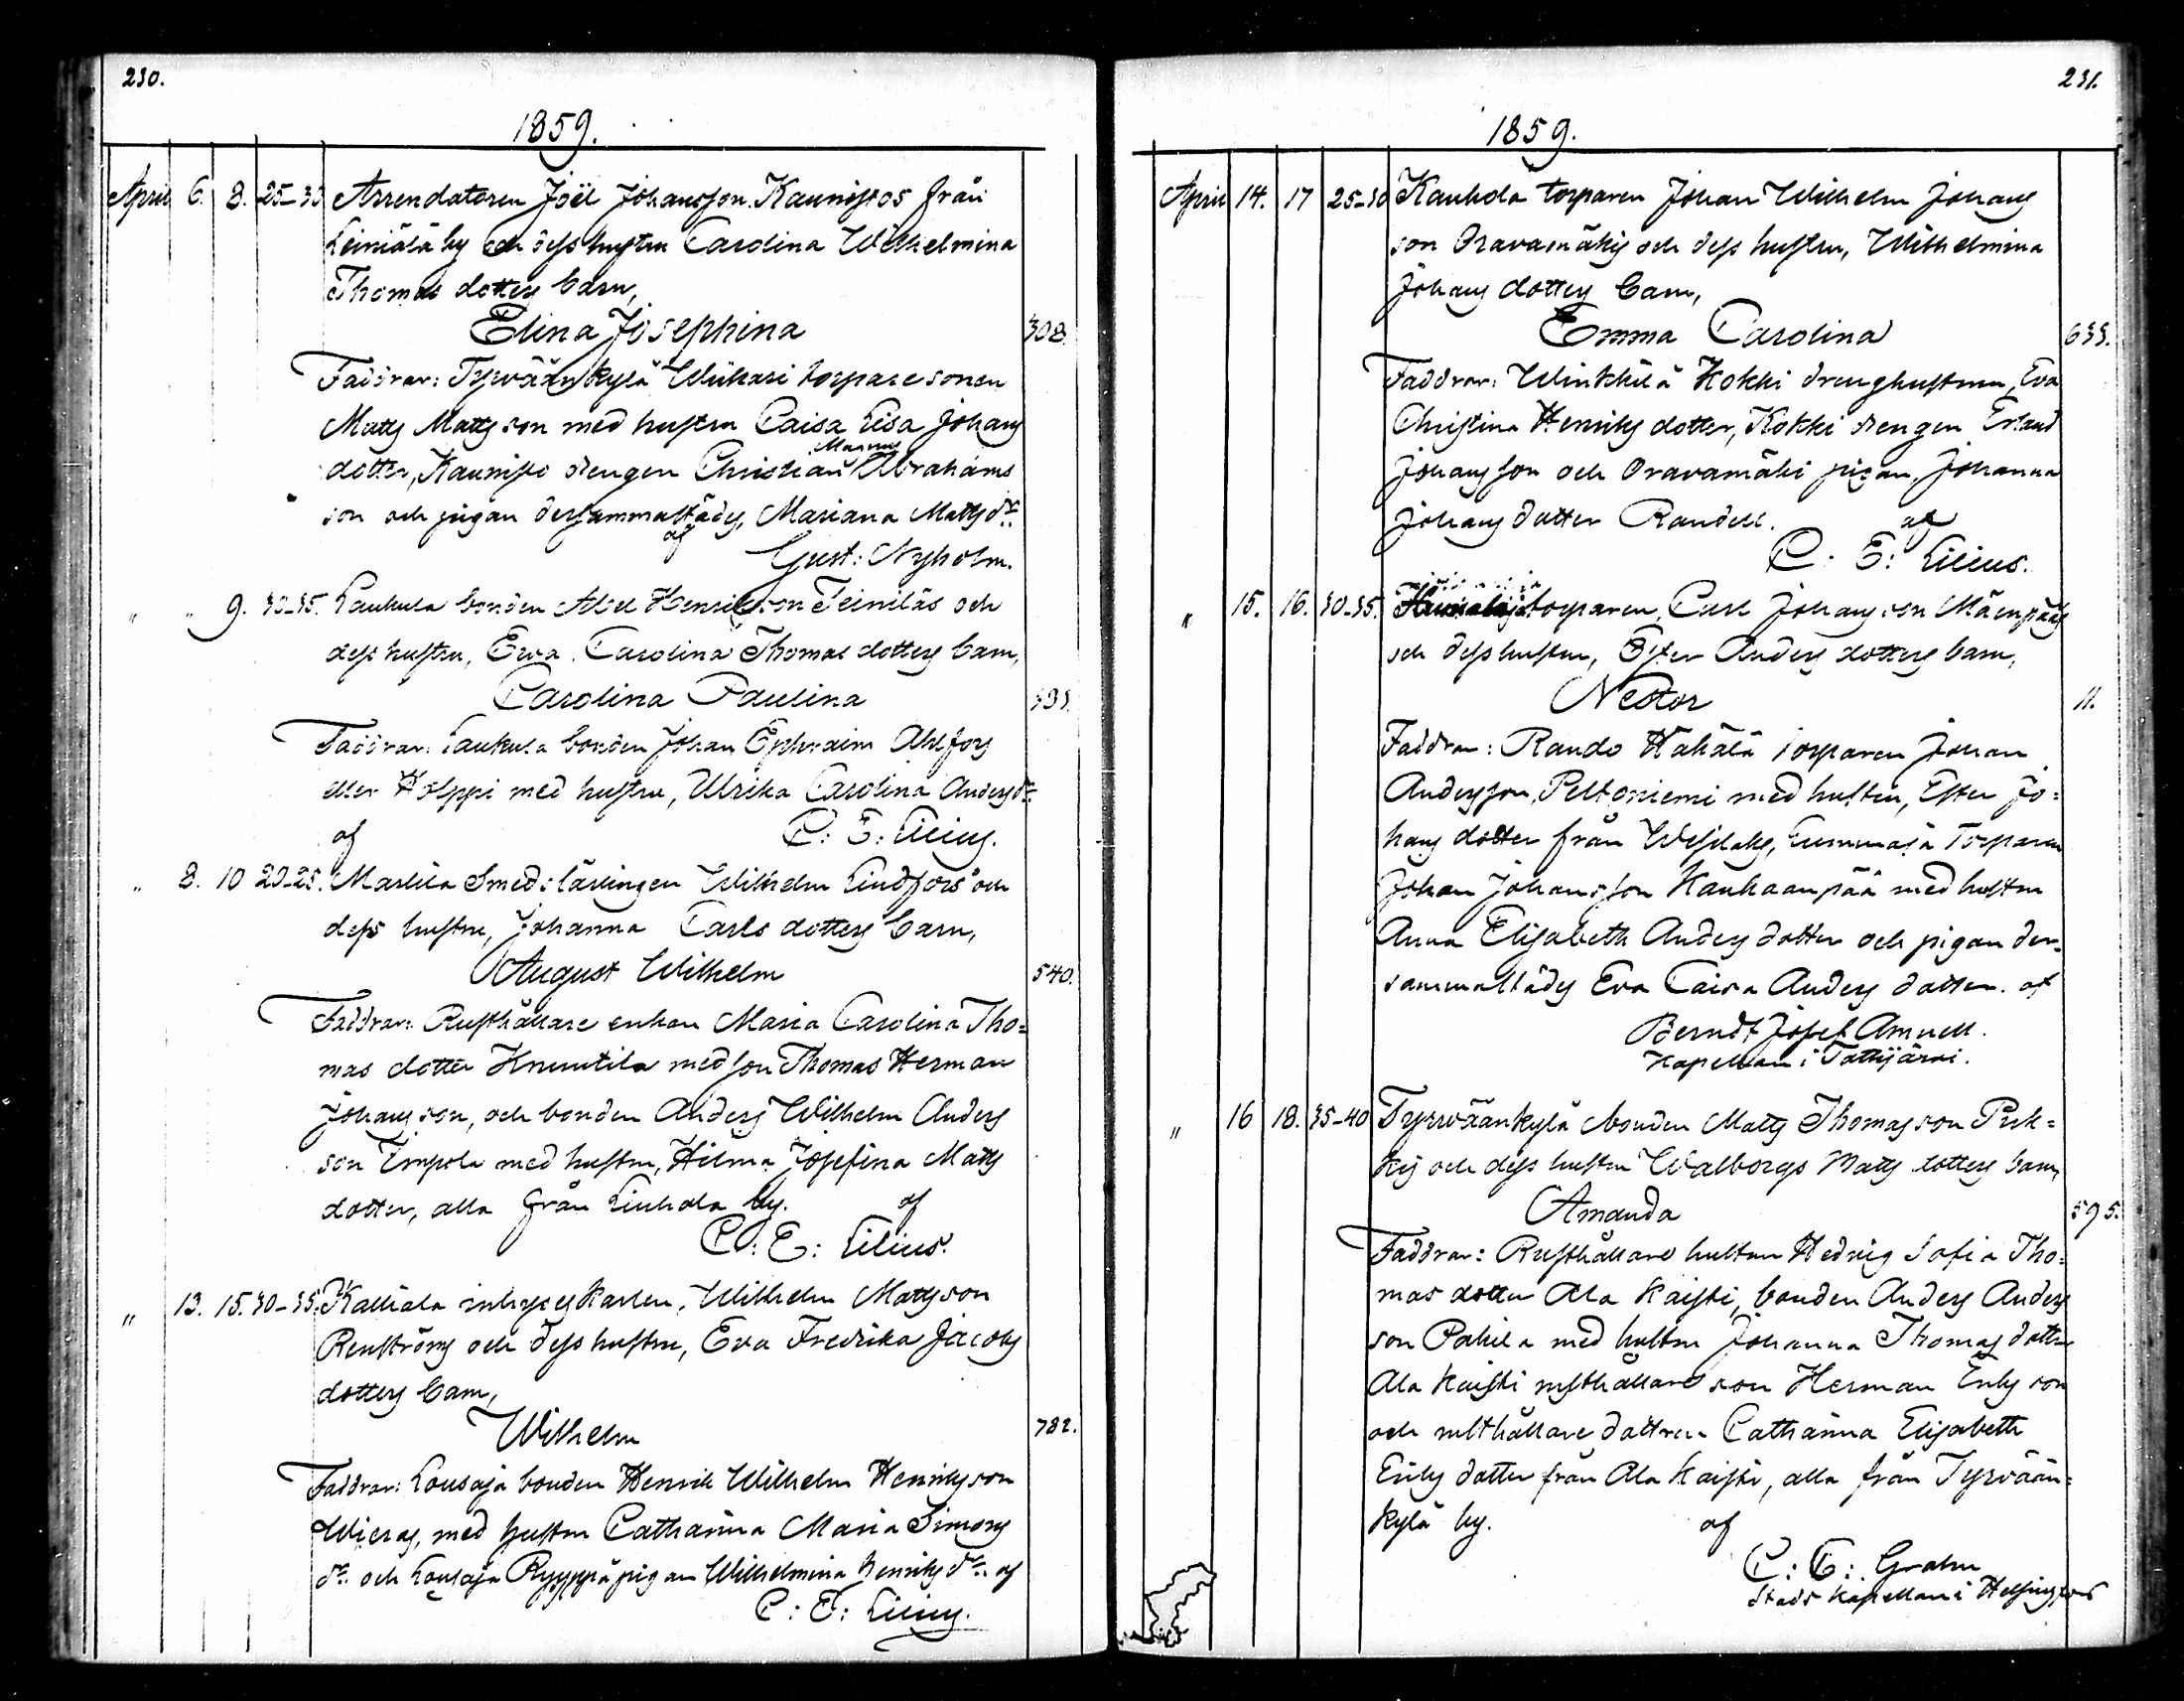 230.
1859.
April 6. 8. 25-30 Arrendatoren Joël Johansson Kaunistos från
Leiniälä by och dess hustru Carolina Wilhelmina
Thomas dotters barn,
Elina Josephina 308.
Faddrar: Tyrväänkylä Wiikari torpare sonen
Matts Mattsson med hustru Caisa Lisa Johans
dotter, Kaunisto drengen Christian Magnus Abrahams
son och pigan dersammastäds, Mariana Matts dr.
af
Gust: Nyholm.
" " 9. 30-35. Laukula bonden Abel Henriksson Teiniläs och
dess hustru, Ewa Carolina Thomas dotters barn,
Carolina Paulina
Faddrar: Laukula bonden Johan Ephraim Ahlfors
eller Holppi med hustru, Ulrika Carolina Anders dr.
af C: E: Lilius.
" 8. 10 20-25. Markila Smeds lärlingen Wilhelm Lindfors och
dess hustru, Johanna Carls dotters barn,
August Wilhelm 540.
Faddrar: Rusthållare enkan Maria Carolina Tho=
mas dotter Knuutila med son Thomas Herman
Johansson, och bonden Anders Wilhelm Anders
son Impola med hustru, Hilma Josefina Matts
dotter, alla från Liuhala by. af
C: E: Lilius.
" 13. 15. 30-35. Kalliala inhyseskarlen, Wilhelm Mattsson
Renströms och dess hustru, Eva Fredrika Jacobs
dotters barn,
Wilhelm 782.
Faddrar: Lousaja bonden Henrik Wilhelm Henriksson
Wieras, med hustru Catharina Maria Simons
dr. och Lousaja Ryyppä pigan Wilhelmina Henriks dr. af
C: E: Lilius.
231.
1859.
April 14. 17 25-30 Kauhola torparen Johan Wilhelm Johans
son Oravamäkis och dess hustru, Wilhelmina
Johans dotters barn,
Emma Carolina 633.
Faddrar: Winkkilä Kokki drenghustrun, Eva
Christina Henriks dotter, Kokki drengen Erland
Johansson och Oravamäki pigan, Johanna
Johans dotter Randell. af
C: E: Lilius.
" 15. 16. 30-35. torparen, Carl Johansson Mäenpääs
och dess hustru, Ester Anders dotters barn,
Nestor 11.
Faddrar: Rando Hähälä torparen Johan
Andersson Peltoniemi med hustru, Ester Jo=
hans dotter från Wesilaks, Lummaja Torparen
Johan Johansson Kankaanpää med hustru
Anna Elisabeth Anders dotter och pigan der-
sammastäds Eva Caisa Anders dotter. af
Berndt Josef Amnell.
Kapellan i Tottijärvi.
" 16 18. 35-40 Tyrväänkylä bonden Matts Thomasson Puk=
kis och dess hustru Walborgs Matts dotters barn,
Amanda 595.
Faddrar: Rusthållare hustrun Hedvig Sofia Tho=
mas dotter Ala Kaisti, bonden Anders Anders
son Pahila med hustru Johanna Thomas dotter
Ala Kaisti rusthållare son Herman Eriks son
och rusthållare dottren Catharina Elisabeth
Eriks dotter från Ala Kaisti, alla från Tyrvään=
kylä by. af
C: E: Grahn
Stads Kapellan i Helsingfors